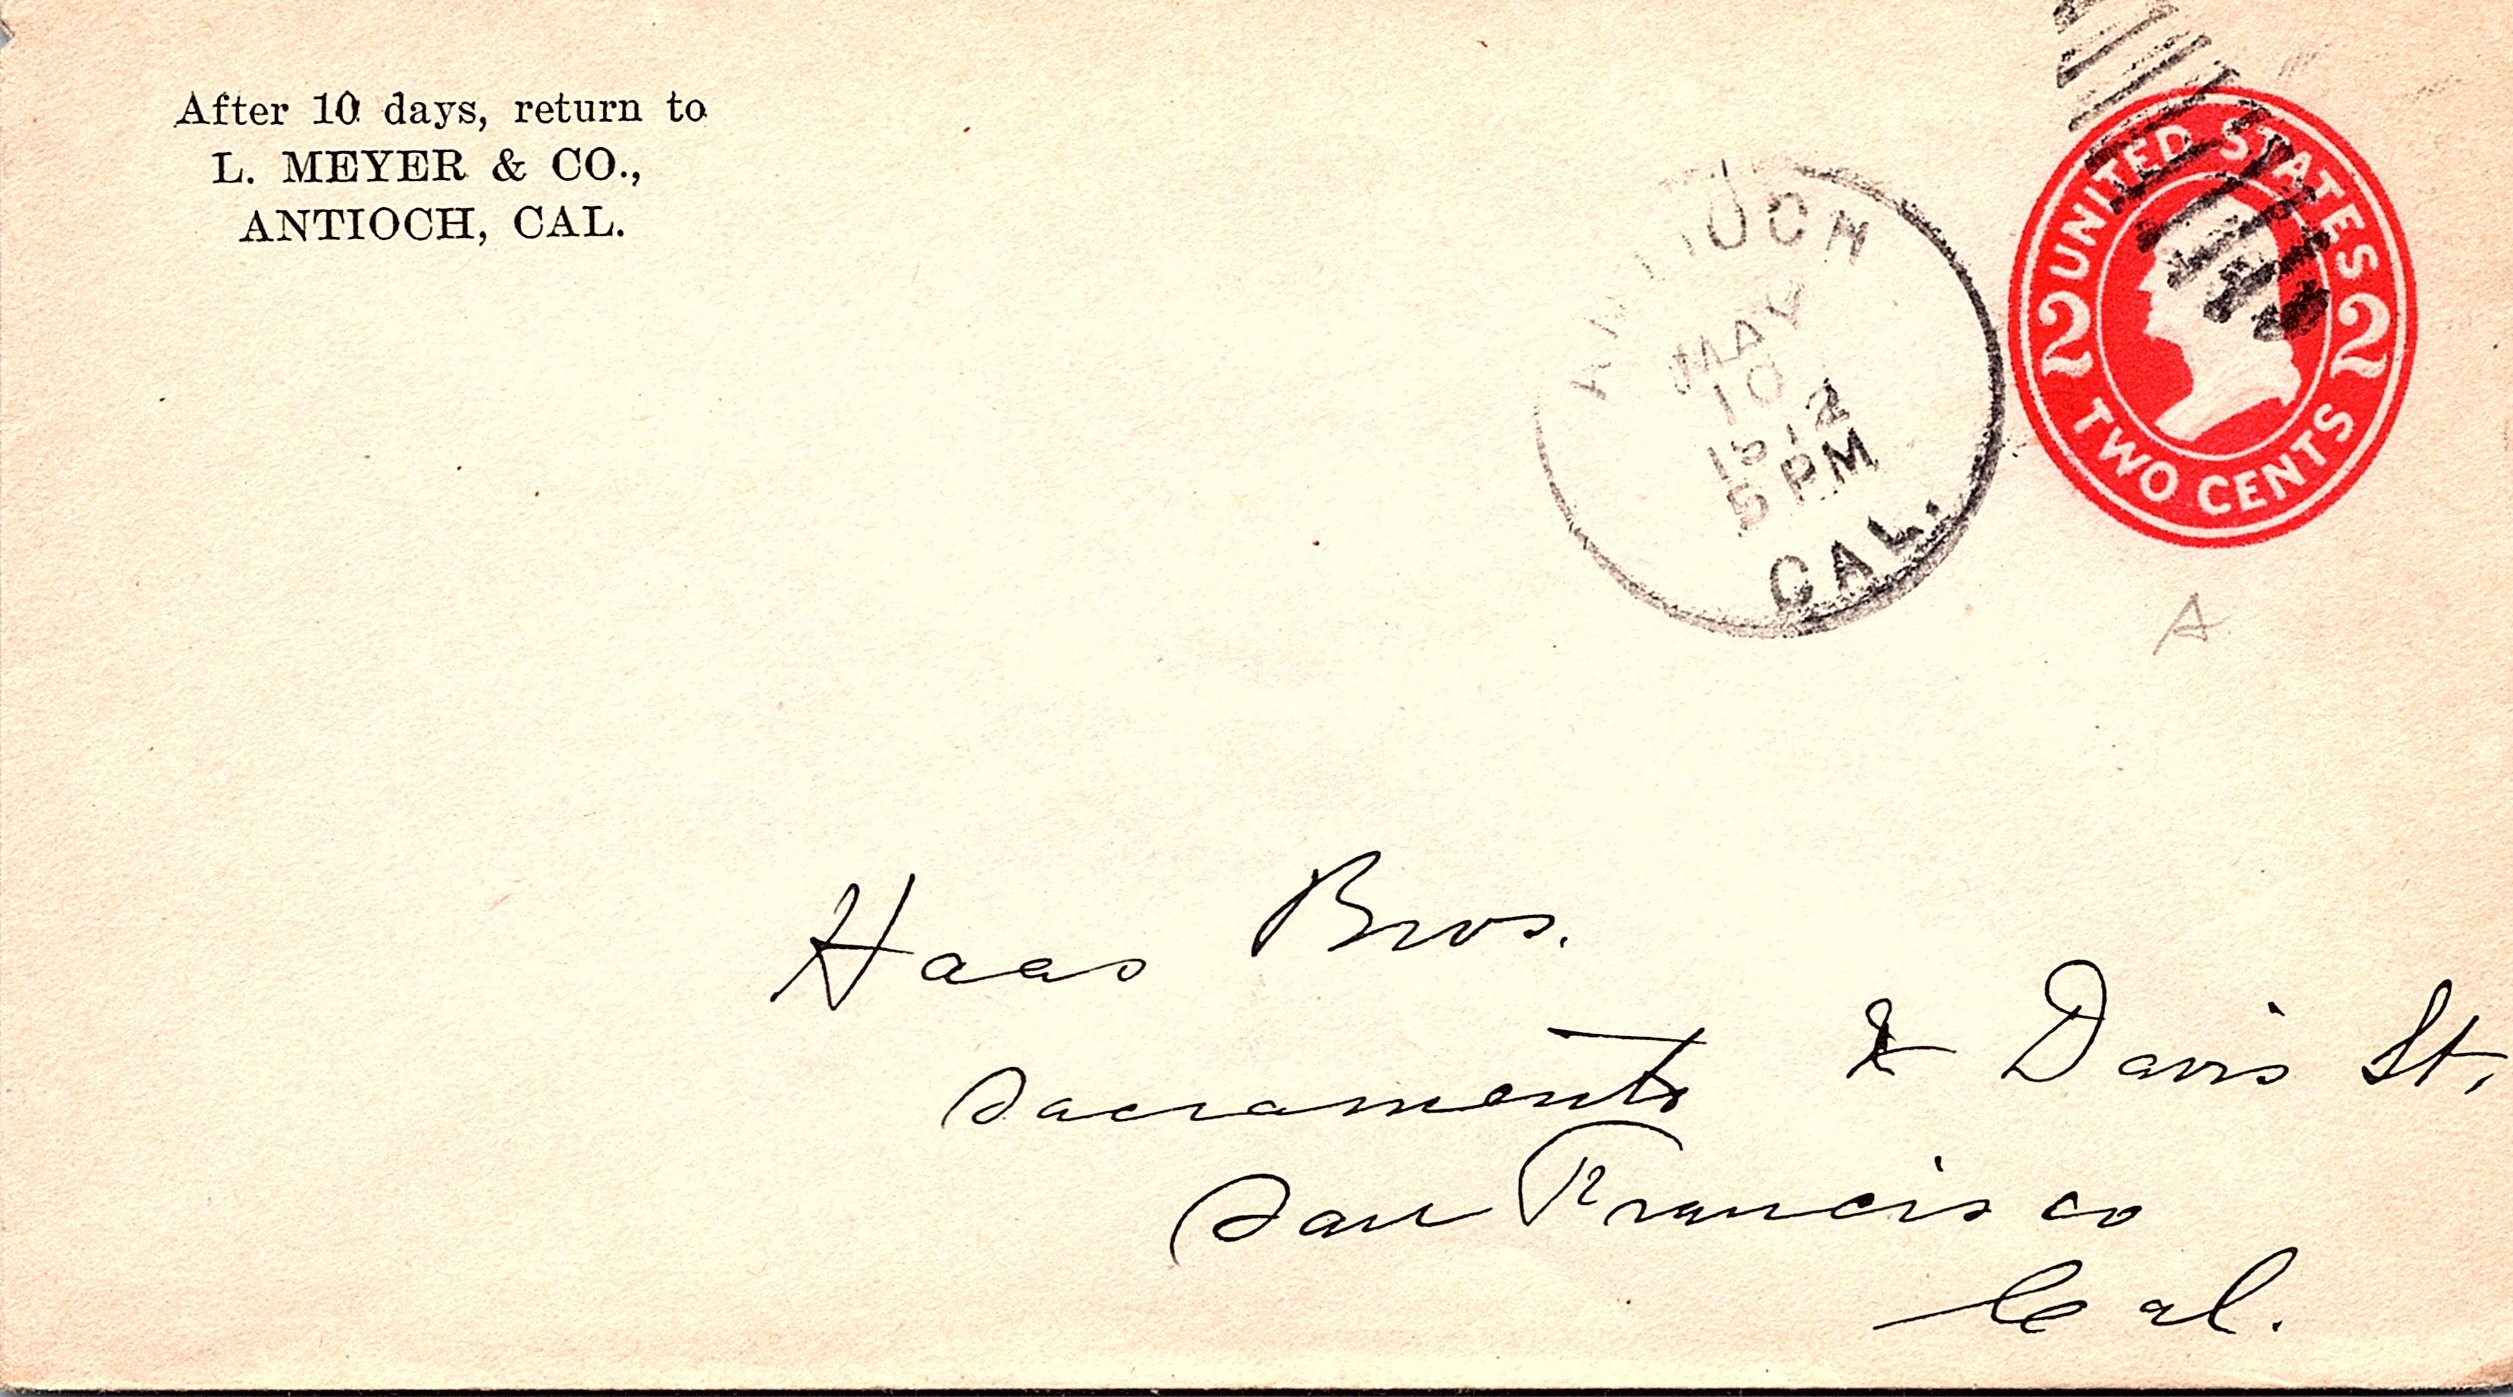 After 10 days, return to
L. MEYER & CO.,
ANTIOCH, CAL.
ANTIOCH
MAY
10
1912
5 PM
CAL.
UNITED STATES
2 2
TWO CENTS
A
Haas Bros.
Sacramento & Davis St.
San Francisco
Cal.